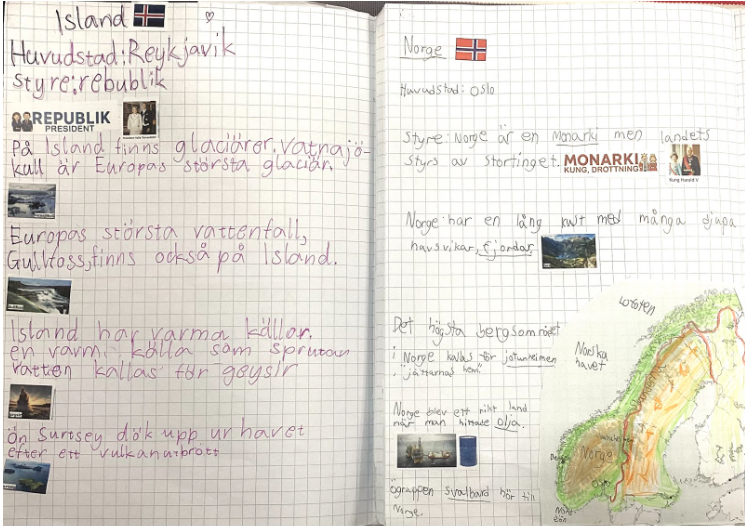 Island
Huvudstad: Reykjavik
Styre: rebublik
REPUBLIK
PRESIDENT
På Island finns glaciärer. Vatnajö-
kull är Europas största glaciär.
Europas största vattenfall,
Gullfoss, finns också på Island.
Island har varma källor.
en varm källa som sprutar
vatten kallas för geysir
ön Surtsey dök upp ur havet
efter ett vulkanutbrott
Norge
Huvudstad: Oslo
Styre: Norge är en Monarki men landets
styrs av stortinget.
MONARKI
KUNG, DROTTNING
Kung Harald V
Norge har en lång kust med många djupa
havsvikar, fjordar
Det högsta bergsområdet
i Norge kallas för jotunheimen
"jättarnas hem"
Norge blev ett rikt land
när man hittade olja.
ögruppen svalbard hör till
Norge.
Norska
havet
Norge